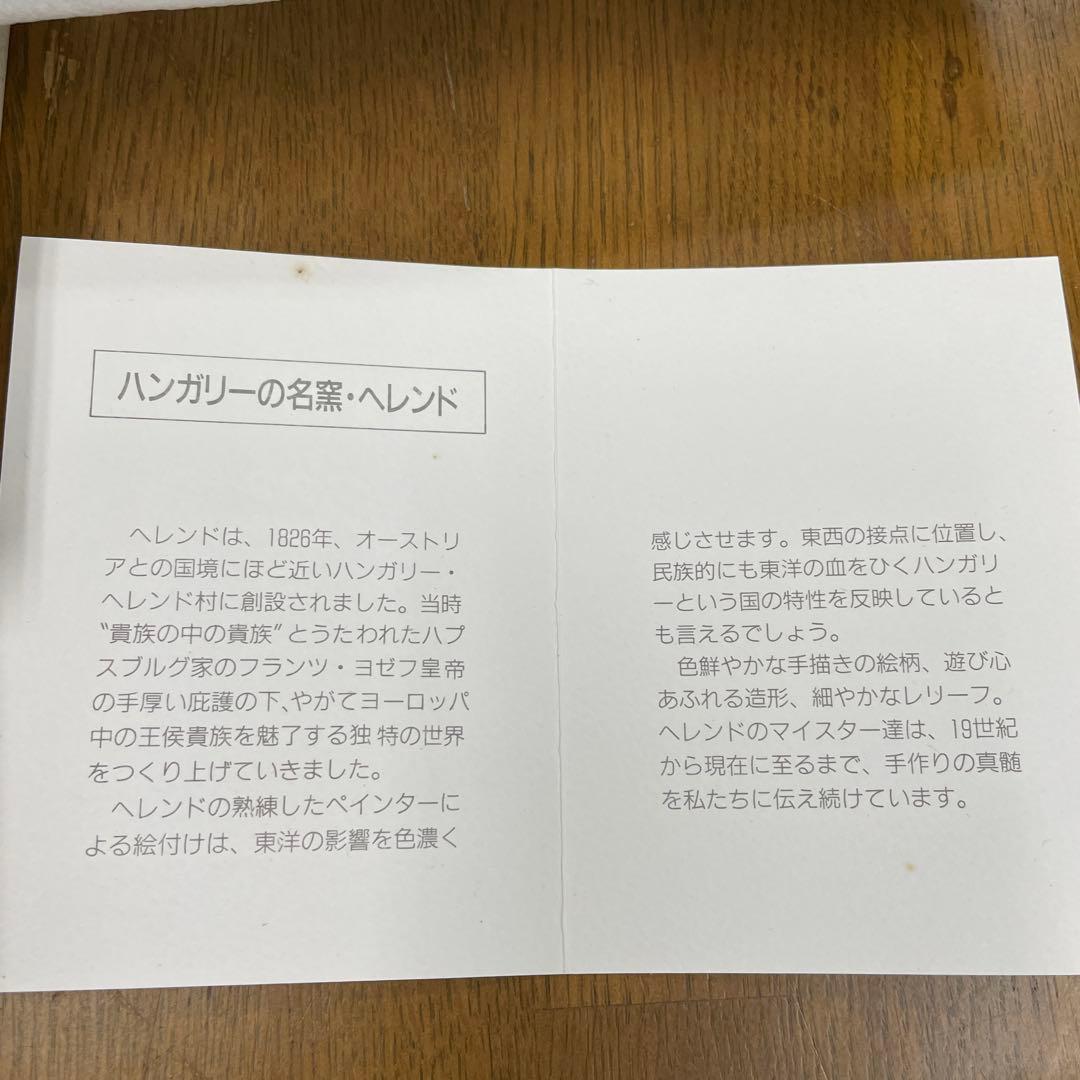 ハンガリーの名窯・ヘレンド
ヘレンドは、1826年、オーストリ
アとの国境にほど近いハンガリー・
ヘレンド村に創設されました。当時
“貴族の中の貴族”とうたわれたハプ
スブルグ家のフランツ・ヨゼフ皇帝
の手厚い庇護の下、やがてヨーロッパ
中の王侯貴族を魅了する独特の世界
をつくり上げていきました。
ヘレンドの熟練したペインターに
よる絵付けは、東洋の影響を色濃く
感じさせます。東西の接点に位置し、
民族的にも東洋の血をひくハンガリ
ーという国の特性を反映していると
も言えるでしょう。
色鮮やかな手描きの絵柄、遊び心
あふれる造形、細やかなレリーフ。
ヘレンドのマイスター達は、19世紀
から現在に至るまで、手作りの真髄
を私たちに伝え続けています。